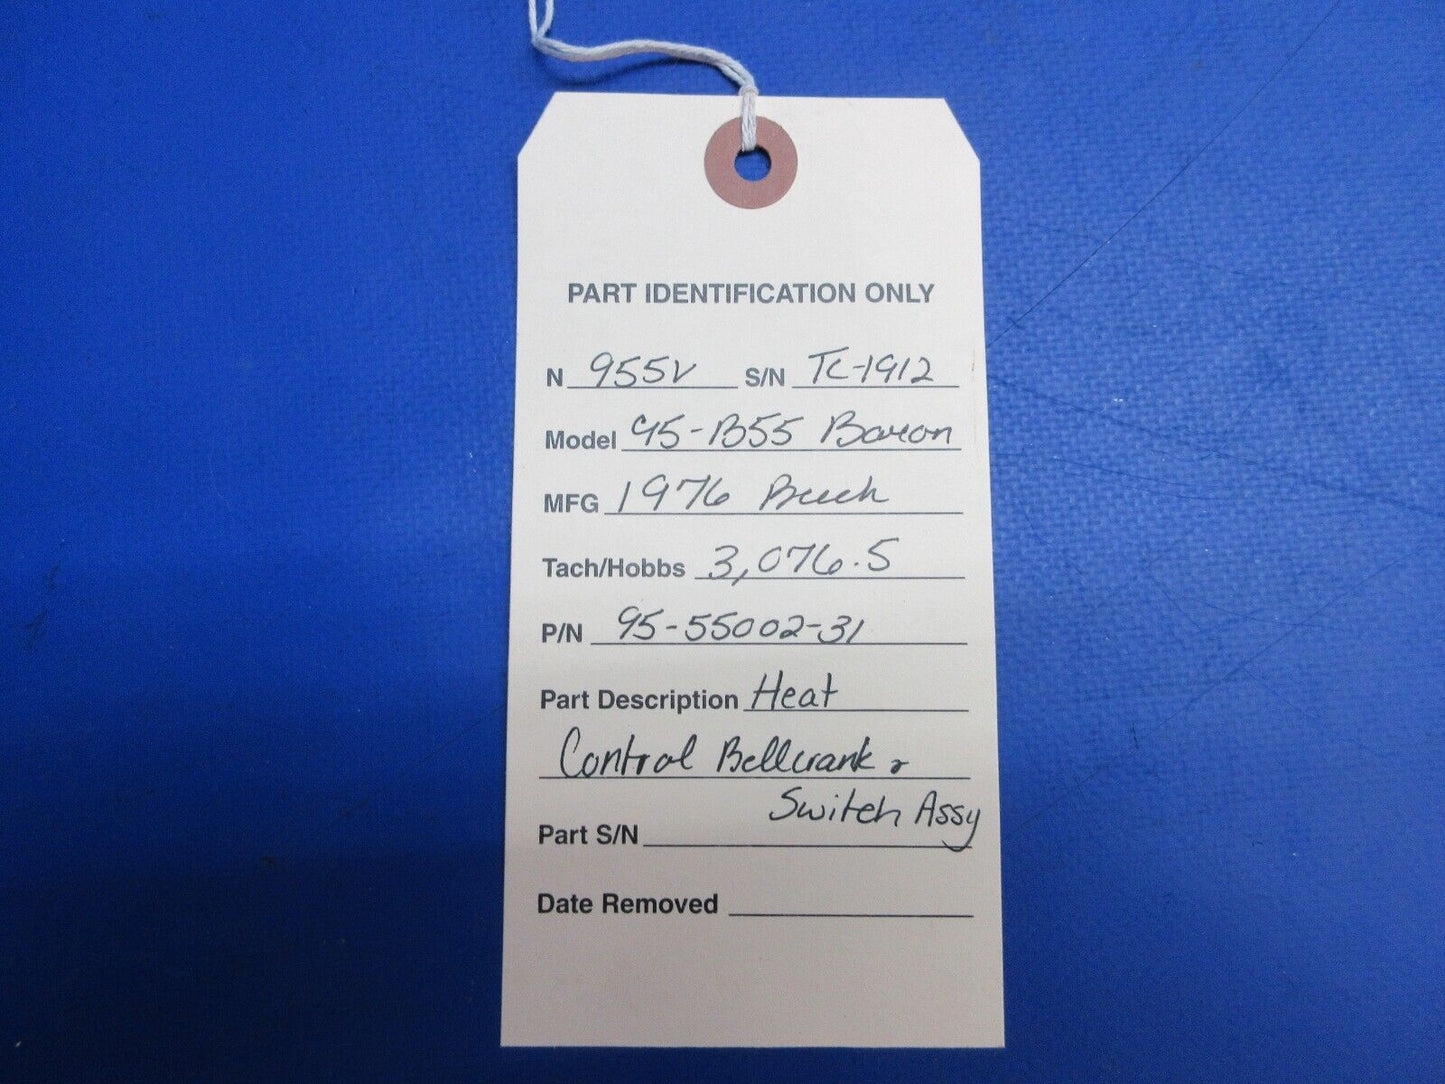 PART IDENTIFICATION ONLY
N 955V S/N TC-1912
Model 95-B55 Baron
MFG 1976 Beech
Tach/Hobbs 3,076.5
P/N 95-55002-31
Part Description Heat
Control Bellcrank &
Switch Assy
Part S/N
Date Removed